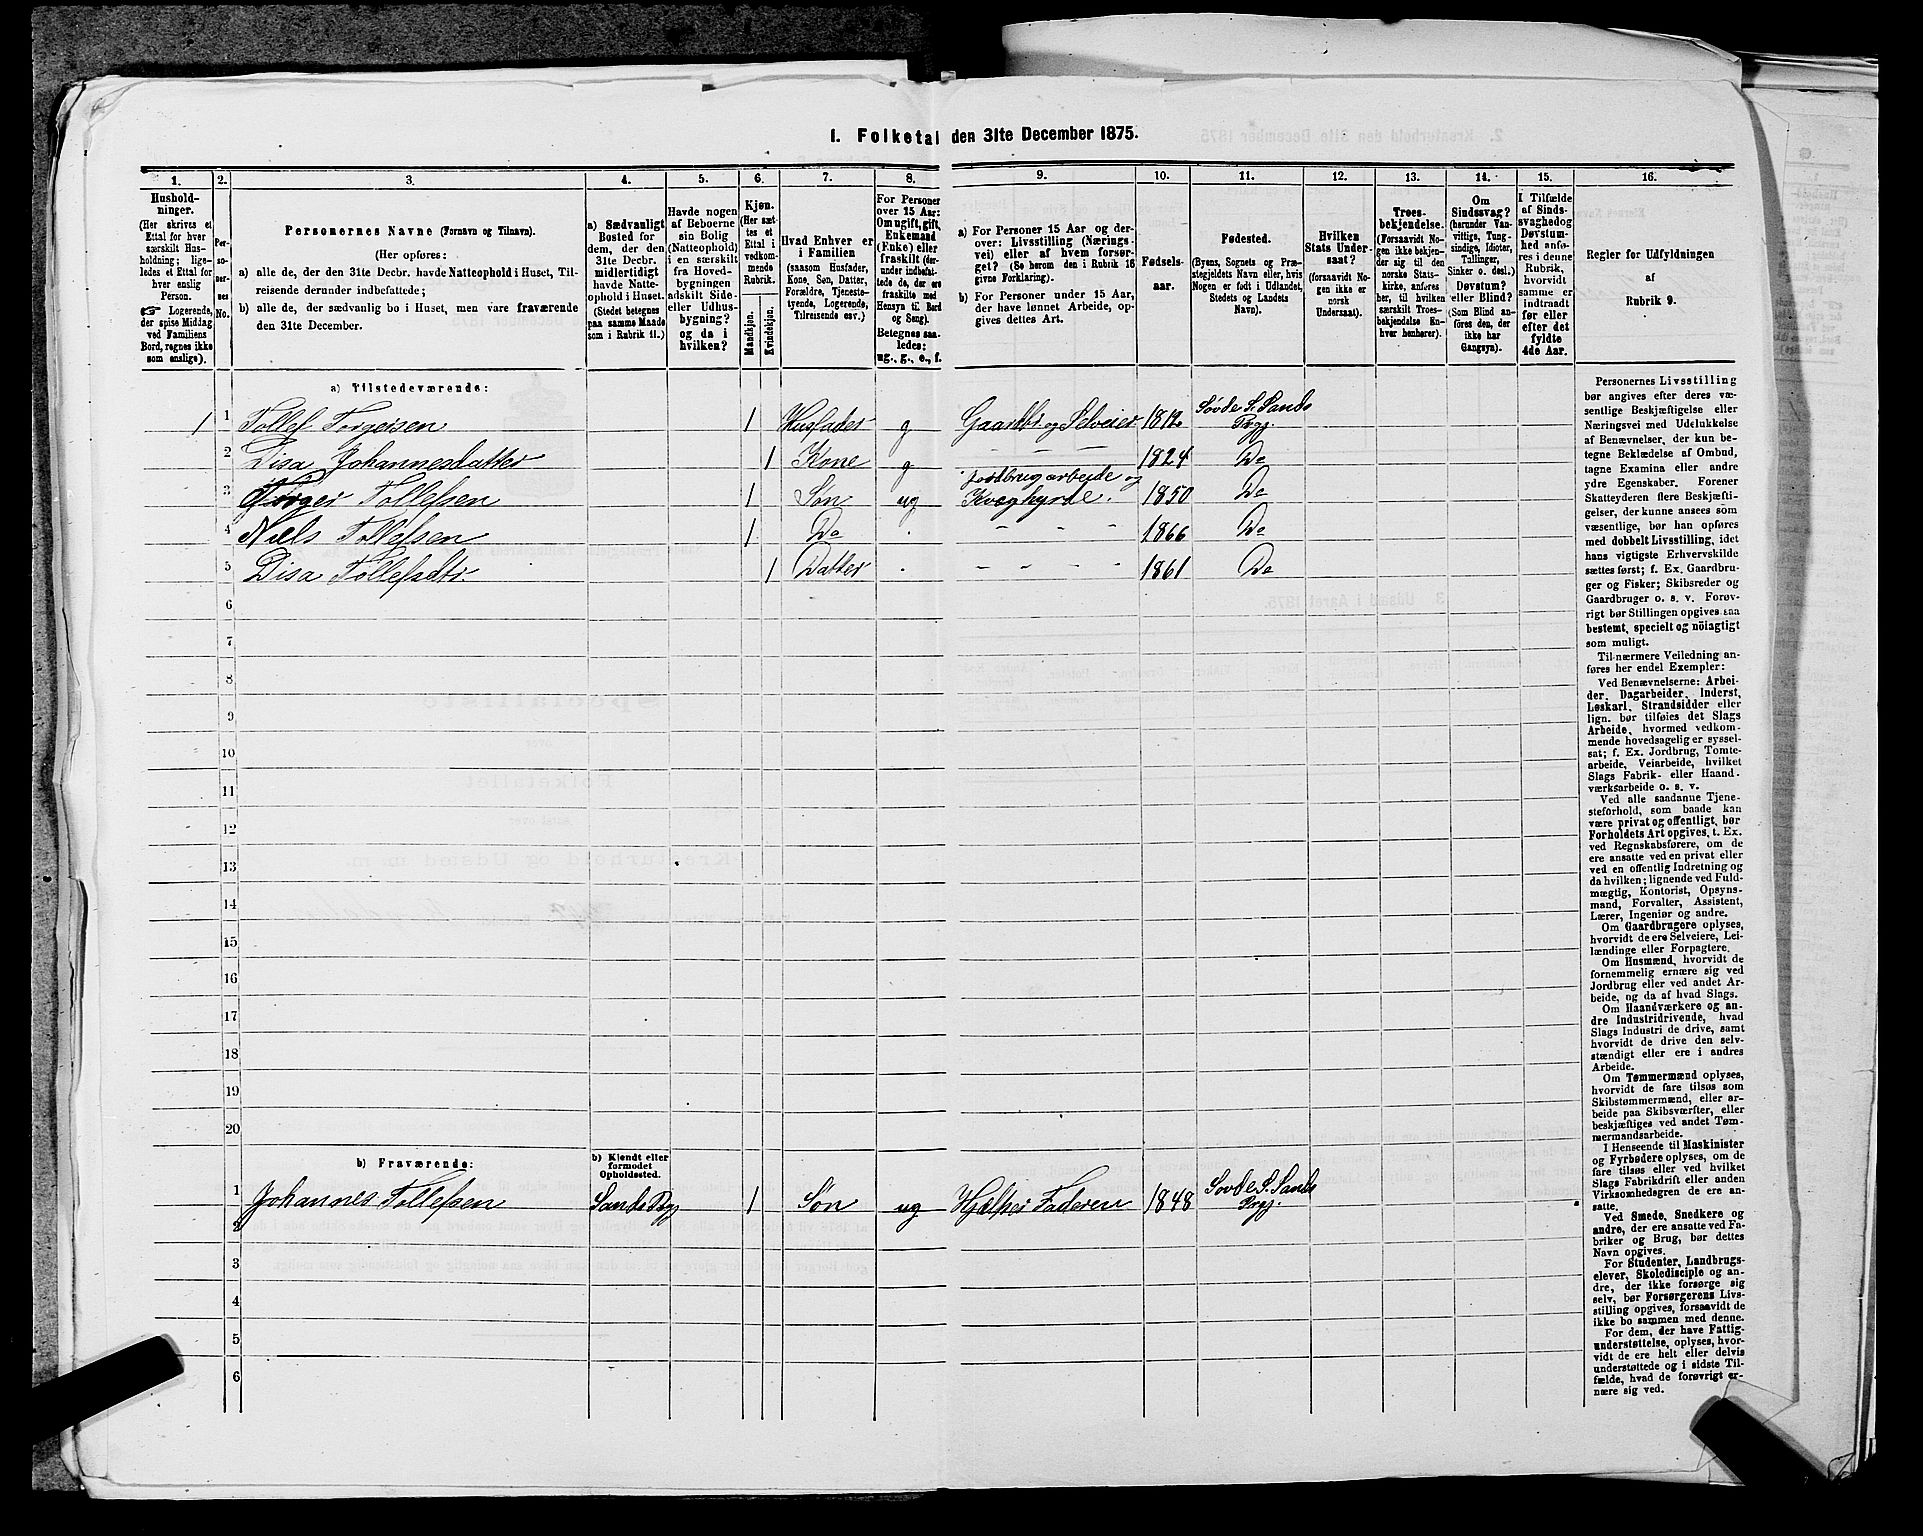 1. Folketal den 31te December 1875.
1.
Hushold-
ninger.
(Her skrives et
Ettal for hver
særskilt Hus-
holdning; lige-
ledes et Ettal for
hver enslig
Person.
☞ Logerende,
der spise Middag
ved Familiens
Bord, regnes ikke
som enslige).
2.
Per-
so-
ner-
nes
No.
3.
Personernes Navne (Fornavn og Tilnavn).
(Her opføres:
a) alle de, der den 31te Decbr. havde Natteophold i Huset, Til-
reisende derunder indbefattede;
b) alle de, der sædvanlig bo i Huset, men vare fraværende
den 31te December.
4.
a) Sædvanligt
Bosted for
dem, der den
31te Decbr.
midlertidigt
havde Natte-
ophold i Huset.
(Stedet betegnes
paa samme Maade
som i Rubrik 11.)
5.
Havde nogen
af Beboerne
sin Bolig
(Natteophold)
i en særskilt
fra Hoved-
bygningen
adskilt Side-
eller Udhus-
bygning?
og da i
hvilken?
6.
Kjøn.
(Her sæt-
tes et
Ettal i
vedkom-
mende
Rubrik.
Mandkjøn.
Kvindekjøn.
7.
Hvad Enhver er
i Familien
(saasom Husfader,
Kone, Søn, Datter,
Forældre, Tjeneste-
tyende, Logerende,
Tilreisende osv.)
8.
For Personer
over 15 Aar:
Om ugift, gift,
Enkemand
(Enke) eller
fraskilt (der-
under indbefat-
tede de, der ere
fraskilte med
Hensyn til Bord
og Seng).
Betegnes saa-
ledes:
ug., g., e., f.
9.
a) For Personer 15 Aar og der-
over: Livsstilling (Nærings-
vei) eller af hvem forsør-
get? (Se herom den i Rubrik 16
givne Forklaring).
b) For Personer under 15 Aar,
der have lønnet Arbeide, op-
gives dettes Art.
10.
Fødsels-
aar.
11.
Fødested.
(Byens, Sognets og Præ-
stegjeldets Navn eller, hvis
Nogen er født i Udlandet,
Stedets og Landets
Navn).
12.
Hvilken
Stats Under-
saat?
(forsaavidt No-
gen ikke er
norsk
Undersaat).
13.
Troes-
bekjendelse.
(Forsaavidt No-
gen ikke bekjen-
der sig til den
norske Stats-
kirke, anføres
her, til hvilken
særskilt Troes-
bekjendelse En-
hver henhører).
14.
Om
Sindssvag?
(herunder Van-
vittige, Tung-
sindige, Idioter,
Tullinger,
Sinker o. desl.)
Døvstum?
eller Blind?
(Som Blind an-
føres den, der
ikke har
Gangsyn).
15.
I Tilfælde
af Sinds-
svaghed og
Døvstum-
hed anfø-
res i denne
Rubrik,
hvorvidt
samme er
indtraadt
før eller
efter det
fyldte
4de Aar.
16.
Regler for Udfyldningen
af
Rubrik 9.
a) Tilstedeværende:
1 1 Tollef Torgersen 1 Husfader g Gaardbr og Selveier 1812 Søvde S. Sands Prgj.
2 Disa Johannesdatter 1 Kone g - - - 1824 Do
3 Torger Tollefsen 1 Søn ug Jordbrugarbeide og Kvæghyrde. 1850 Do
4 Niels Tollefsen 1 Do . - - - 1866 Do
5 Disa Tollefsdtr. 1 Datter . - - - - 1861 Do
6
7
8
9
10
11
12
13
14
15
16
17
18
19
20
b) Fraværende:
b) Kjendt eller
formodet
Opholdssted.
1 Johannes Tollefsen Sands Prgj 1 Søn ug Hjælper Faderen 1848 Sovde S. Sands Prgj.
2
3
4
5
6
Personernes Livsstilling
bør angives efter deres væ-
sentlige Beskjæftigelse eller
Næringsvei med Udelukkelse
af Benævnelser, der kun be-
tegne Beklædelse af Ombud,
tagne Examina eller andre
ydre Egenskaber. Forener
Skatteyderen flere Beskjæfti-
gelser, der kunne ansees som
væsentlige, bør han opføres
med dobbelt Livsstilling, idet
hans vigtigste Erhvervskilde
sættes først; f. Ex. Gaardbru-
ger og Fisker; Skibsreder og
Gaardbruger o. s. v. Forøv-
rigt bør Stillingen opgives saa
bestemt, specielt og nöiagtigt
som muligt.
Til nærmere Veiledning an-
føres her endel Exempler:
Ved Benævnelserne: Arbei-
der, Dagarbeider, Inderst,
Løskarl, Strandsidder eller
lign. bør tilføies det Slags
Arbeide, hvormed vedkom-
mende hovedsagelig er syssel-
sat; f. Ex. Jordbrug, Tomte-
arbeide, Veiarbeide, hvilket
Slags Fabrik- eller Haand-
værksarbeide o. s. v.
Ved alle saadanne Tjene-
steforhold, som baade kan
være privat og offentligt, bør
Forholdets Art opgives, t. Ex.
ved Regnskabsførere, om de
ere ansatte ved en privat eller
ved en offentlig Indretning og
da hvilken; lignende ved Fuld-
mægtig, Kontorist, Opsyns-
mand, Forvalter, Assistent,
Lærer, Ingeniør og andre.
Om Gaardbrugere oplyses,
hvorvidt de ere Selveiere, Lei-
lændinge eller Forpagtere.
Om Husmænd, hvorvidt de
fornemmelig ernære sig ved
Jordbrug eller ved andet Ar-
beide, og da af hvad Slags.
Om Haandværkere og an-
dre Industridrivende, hvad
Slags Industri de drive, samt
hvorvidt de drive den selv-
stændigt eller ere i andres
Arbeide.
Om Tømmermænd oplyses,
hvorvidt de fare tilsøs som
Skibstømmermænd, eller ar-
beide paa Skibsværfter, eller
beskjæftiges ved andet Tøm-
mermandsarbeide.
I Henseende til Maskinister
og Fyrbødere oplyses, om de
fare tilsøs eller ved hvilket
Slags Fabrikdrift eller anden
Virksomhedsgren de ere an-
satte.
Ved Smede, Snedkere og
andre, der ere ansatte ved Fa-
briker og Brug, bør dettes
Navn opgives.
For Studenter, Landbrugs-
elever, Skoledisciple og an-
dre, der ikke forsørge sig
selv, bør Forsørgerens Livs-
stilling opgives, forsaavidt de
ikke bo sammen med denne.
For dem, der have Fattig-
understøttelse, oplyses, hvor-
vidt de ere helt eller delvis
understøttede og i sidste Til-
fælde, hvad de forøvrigt er-
nære sig ved.